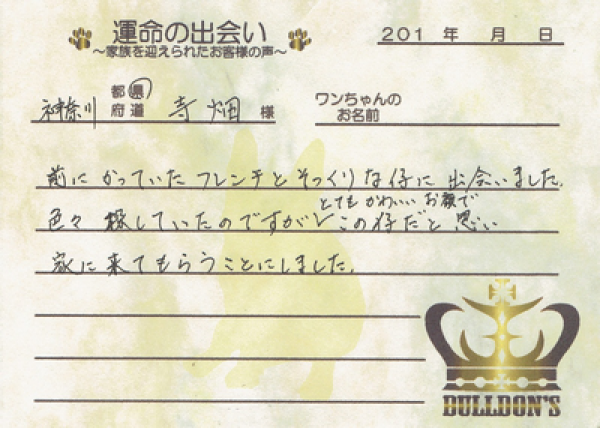 運命の出会い
～家族を迎えられたお客様の声～
201 年 月 日
神奈川 都県府道 寺畑 様
ワンちゃんの
お名前
前にかっていたフレンチとそっくりな仔に出会いました。
とてもかわいいお顔で
色々探していたのですが この仔だと思い
家に来てもらうことにしました。
BULLDON'S